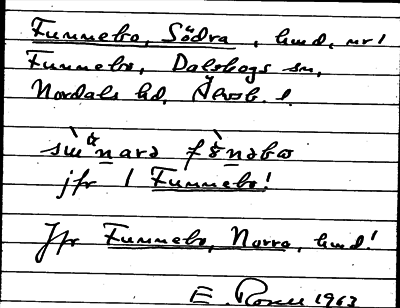 Funnebo, Södra, lmd, nr 1
Funnebo, Dalskogs sn,
Nordals hd, Älvsb. l.
fö̀nəbω
jfr 1 Funnebo!
Jfr Funnebo, Norra, lmd!
E. Rosell 1963